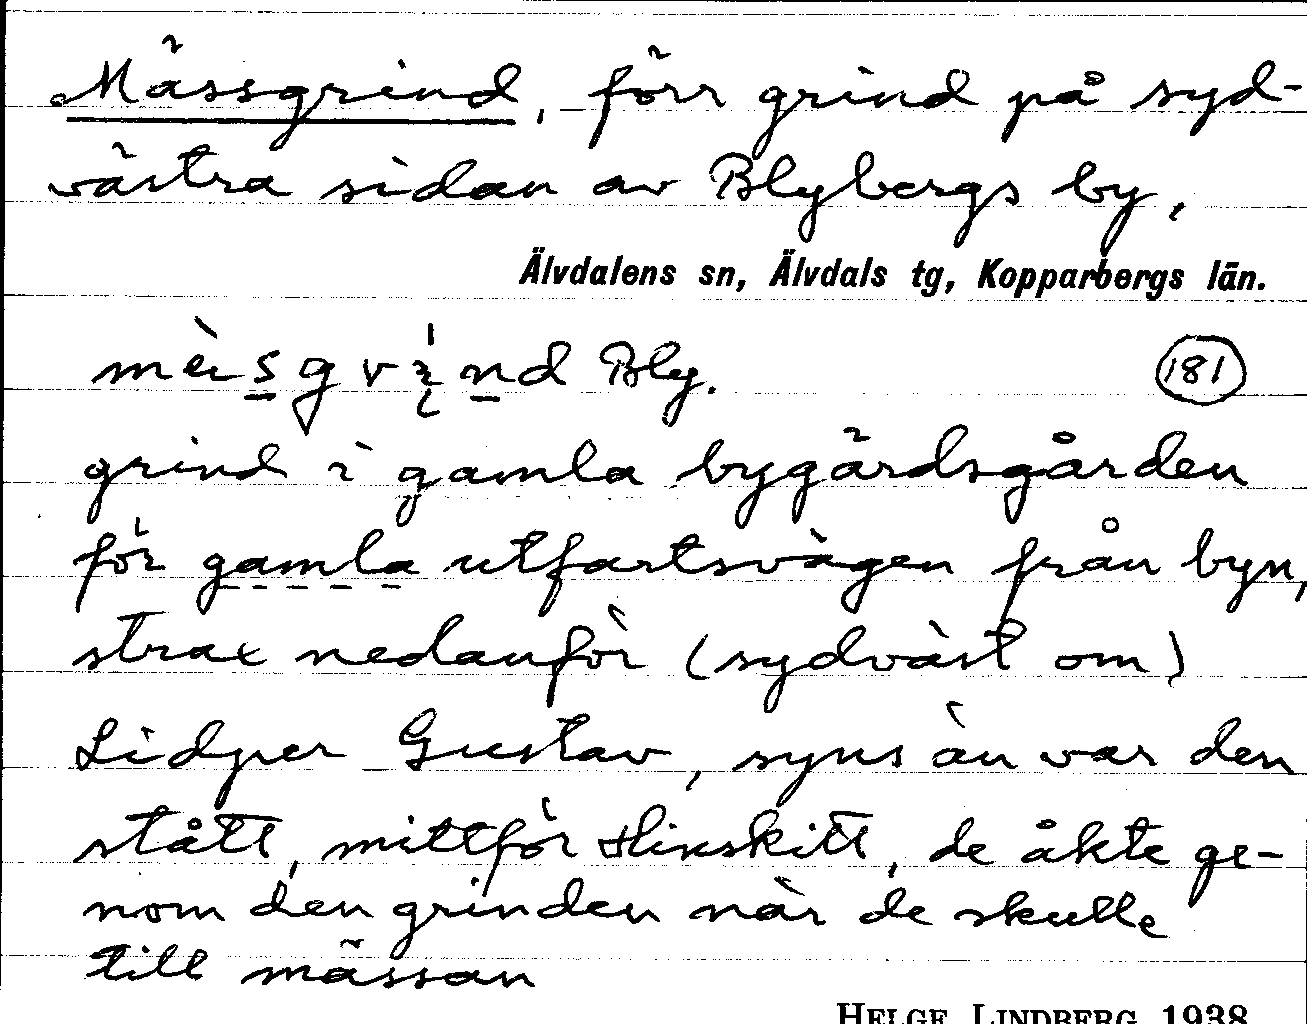 Mässgrind, förr grind på syd-
västra sidan av Blybergs by,
Älvdalens sn, Älvdals tg, Kopparbergs län.
Bly. 181
grind i gamla bygärdsgården
för gamla utfartsvägen från byn,
strax nedanför (sydväst om)
Lidper Gustav, syns än var den
stått, mittför Hinskitt, de åkte ge-
nom den grinden när de skulle
till mässan
HELGE LINDBERG 1938